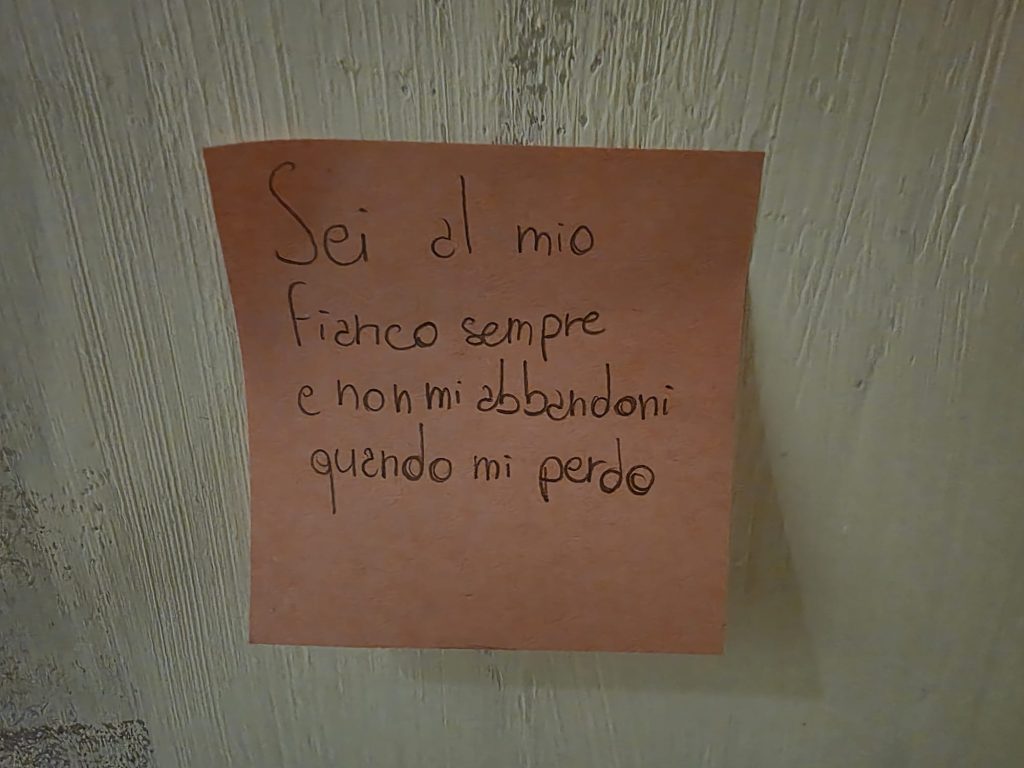 Sei al mio
fianco sempre
e non mi abbandoni
quando mi perdo